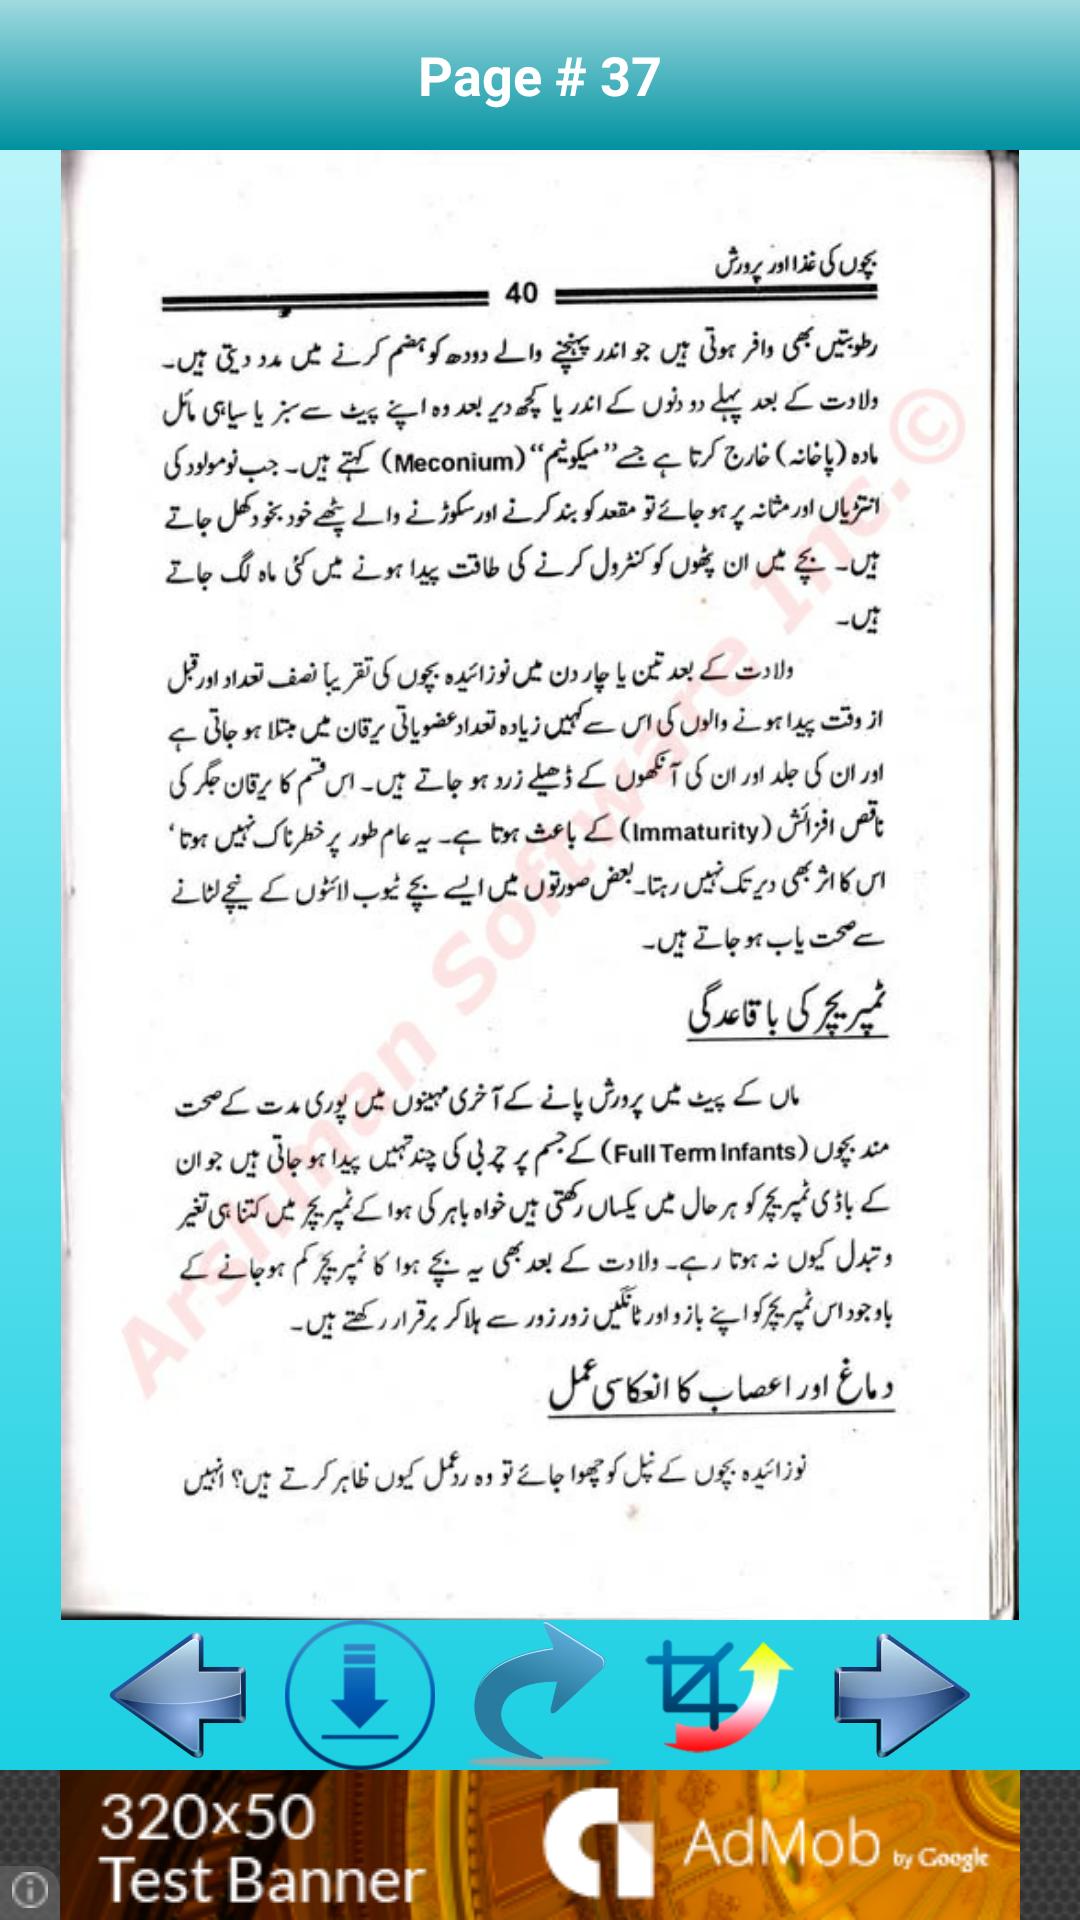 Page # 37
بچوں کی غذا اور پرورش
40
رطوبتیں بھی وافر ہوتی ہیں جو اندر پہنچنے والے دودھ کو ہضم کرنے میں مدد دیتی ہیں۔
ولادت کے بعد پہلے دو دنوں کے اندر یا کچھ دیر بعد وہ اپنے پیٹ سے سبز یا سیاہی مائل
مادہ (پاخانہ) خارج کرتا ہے جسے ”میکونیم“ (Meconium) کہتے ہیں۔ جب نومولود کی
انتڑیاں اور مثانہ پر ہو جائے تو مقعد کو بند کرنے اور سکوڑنے والے پٹھے خود بخود کھل جاتے
ہیں۔ بچے میں ان پٹھوں کو کنٹرول کرنے کی طاقت پیدا ہونے میں کئی ماہ لگ جاتے
ہیں۔
ولادت کے بعد تین یا چار دن میں نوزائیدہ بچوں کی تقریباً نصف تعداد اور قبل
از وقت پیدا ہونے والوں کی اس سے کہیں زیادہ تعداد عضویاتی یرقان میں مبتلا ہو جاتی ہے
اور ان کی جلد اور ان کی آنکھوں کے ڈھیلے زرد ہو جاتے ہیں۔ اس قسم کا یرقان جگر کی
ناقص افزائش (Immaturity) کے باعث ہوتا ہے۔ یہ عام طور پر خطرناک نہیں ہوتا‘
اس کا اثر بھی دیر تک نہیں رہتا۔ بعض صورتوں میں ایسے بچے ٹیوب لائٹوں کے نیچے لٹانے
سے صحت یاب ہو جاتے ہیں۔
ٹمپریچر کی باقاعدگی
ماں کے پیٹ میں پرورش پانے کے آخری مہینوں میں پوری مدت کے صحت
مند بچوں (Full Term Infants) کے جسم پر چربی کی چند تہیں پیدا ہو جاتی ہیں جو ان
کے باڈی ٹمپریچر کو ہر حال میں یکساں رکھتی ہیں خواہ باہر کی ہوا کے ٹمپریچر میں کتنا ہی تغیر
و تبدل کیوں نہ ہوتا رہے۔ ولادت کے بعد بھی یہ بچے ہوا کا ٹمپریچر کم ہوجانے کے
باوجود اس ٹمپریچر کو اپنے بازو اور ٹانگیں زور زور سے ہلا کر برقرار رکھتے ہیں۔
دماغ اور اعصاب کا انعکاسی عمل
نوزائیدہ بچوں کے نپل کو چھوا جائے تو وہ ردعمل کیوں ظاہر کرتے ہیں؟ انہیں
Arshman Software Inc. ©
320x50
Test Banner
AdMob by Google